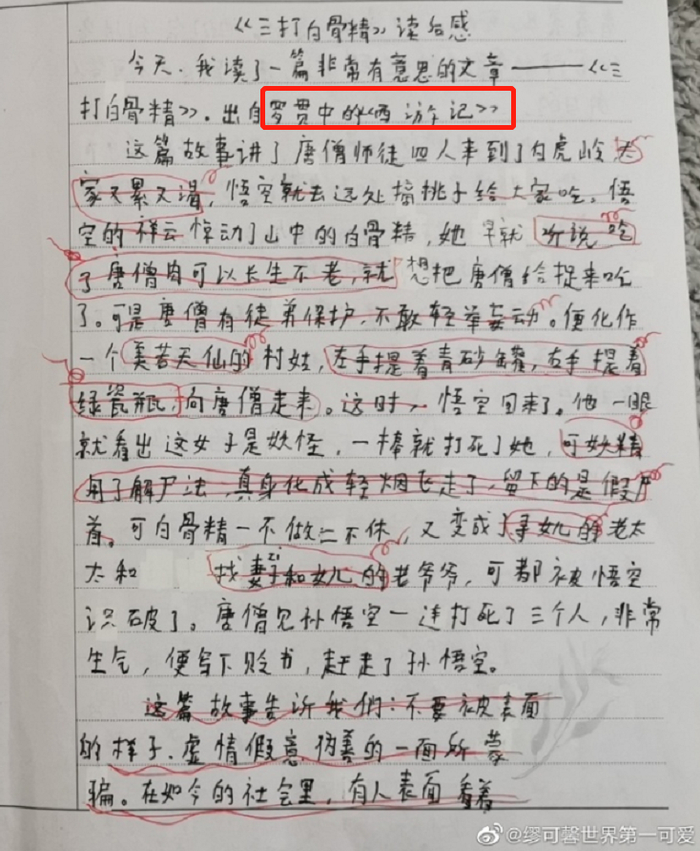 《三打白骨精》读后感
今天,我读了一篇非常有意思的文章——《三
打白骨精》.出自罗贯中的《西游记》
这篇故事讲了唐僧师徒四人来到了白虎岭大
家又累又渴,悟空就去远处摘桃子给大家吃。悟
空的祥云惊动了山中的白骨精,她早就听说吃
了唐僧肉可以长生不老,就想把唐僧给捉来吃
了。可是唐僧有徒弟保护,不敢轻举妄动。便化作
一个美若天仙的村姑,左手提着青砂罐,右手提着
绿瓷瓶,向唐僧走来。这时,悟空回来了。他一眼
就看出这女子是妖怪,一棒就打死了她,可妖精
用了解尸法,真身化成轻烟飞走了,留下的是假尸
首。可白骨精一不做二不休,又变成了寻女儿的老太
太和 找妻子和女儿的老爷爷,可都被悟空
识破了。唐僧见孙悟空一连打死了三个人,非常
生气,便写下贬书,赶走了孙悟空。
这篇故事告诉我们:不要被表面
的样子.虚情假意伪善的一面所蒙
骗。在如今的社会里,有人表面看着
@缪可馨世界第一可爱